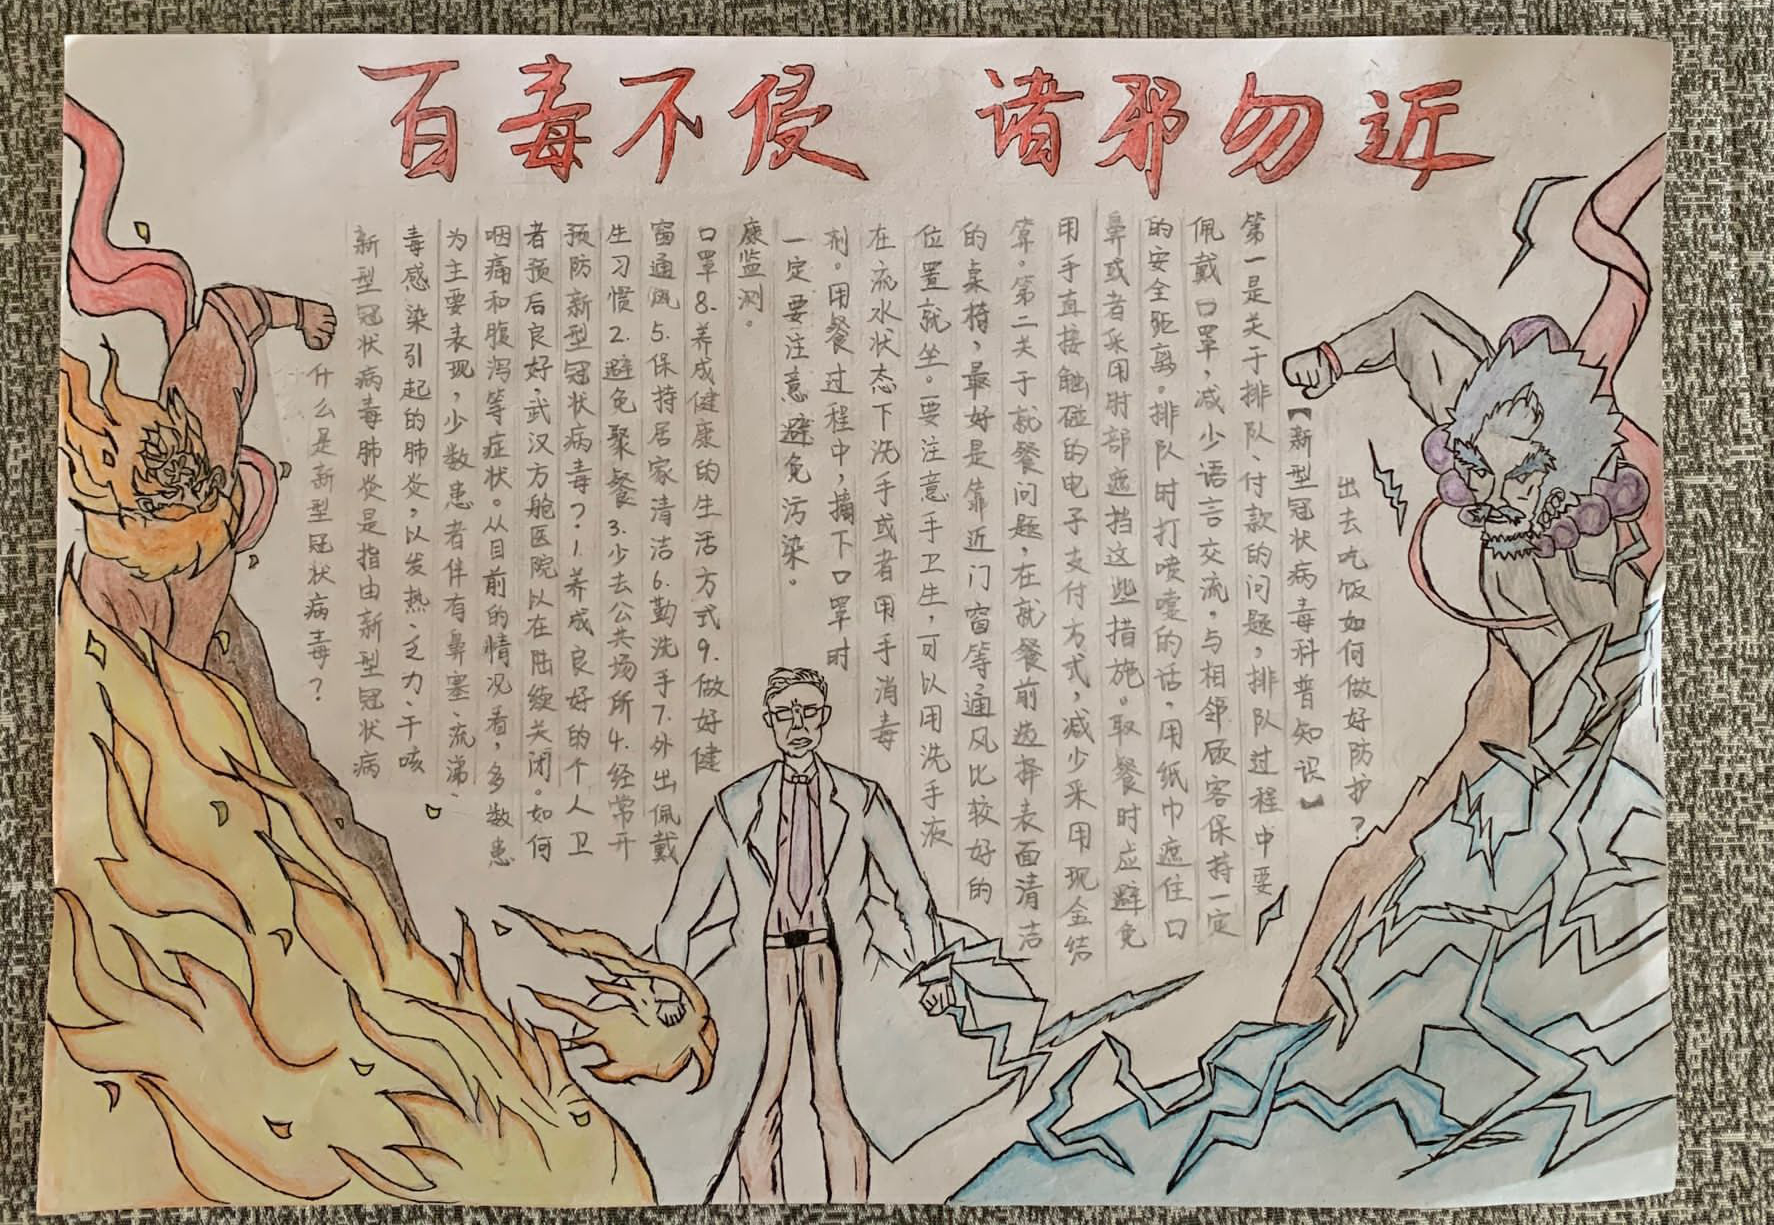 百毒不侵 诸邪勿近
出去吃饭如何做好防护？
【新型冠状病毒科普知识】
第一是关于排队、付款的问题，排队过程中要
佩戴口罩，减少语言交流，与相邻顾客保持一定
的安全距离。排队时打喷嚏的话，用纸巾遮住口
鼻或者采用肘部遮挡这些措施。取餐时应避免
用手直接触碰的电子支付方式，减少采用现金结
算。第二关于就餐问题，在就餐前选择表面清洁
的桌椅，最好是靠近门窗等通风比较好的
位置就坐。要注意手卫生，可以用洗手液
在流水状态下洗手或者用手消毒
剂。用餐过程中，摘下口罩时
一定要注意避免污染。
康监测。
口罩8.养成健康的生活方式9.做好健
窗通风5.保持居家清洁6.勤洗手7.外出佩戴
生习惯2.避免聚餐3.少去公共场所4.经常开
预防新型冠状病毒？1.养成良好的个人卫
者预后良好，武汉方舱医院以在陆续关闭。如何
咽痛和腹泻等症状。从目前的情况看，多数患
为主要表现，少数患者伴有鼻塞、流涕、
毒感染引起的肺炎，以发热、乏力、干咳
新型冠状病毒肺炎是指由新型冠状病
什么是新型冠状病毒？